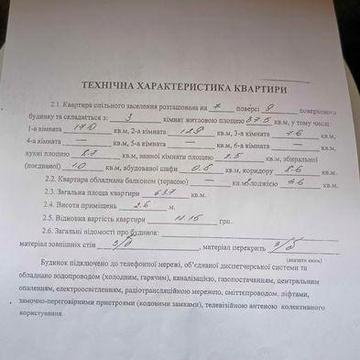 ТЕХНІЧНА ХАРАКТЕРИСТИКА КВАРТИРИ
2.1. Квартира спільного заселення розташована на 7 поверсі 9 поверхового
будинку та складається з: 3 кімнат житловою площею 37.5 кв.м, у тому числі:
1-а кімната 17.0 кв.м, 2-а кімната 12.9 кв.м, 3-а кімната 7.6 кв.м,
4-а кімната — кв.м, 5-а кімната — кв.м, 6-а кімната — кв.м,
кухні площею 8.7 кв.м, ванної кімнати площею 2.5 кв.м, вбиральні
(поєднаної) 1.0 кв.м, вбудованої шафи 0.5 кв.м, коридору 8.6 кв.м,
2.2. Квартира обладнана балконом (терасою) — кв.м лоджією кв.м
2.3. Загальна площа квартири 63.7 кв.м.
2.4. Висота приміщень 2.6 м.
2.5. Відновна вартість квартири грн.
2.6. Загальні відомості про будинок:
матеріал зовнішніх стін з/б, матеріал перекрить з/б
(вказати який)
Будинок підключено до телефонної мережі, об'єднаної диспетчерської системи та
обладнано водопроводом (холодним, гарячим), каналізацією, газопостачанням, центральним
опаленням, електроосвітленням, радіотрансляційною мережею, сміттєпроводом, ліфтами,
замочно-переговорними пристроями (кодовими замками), телевізійною антеною колективного
користування.